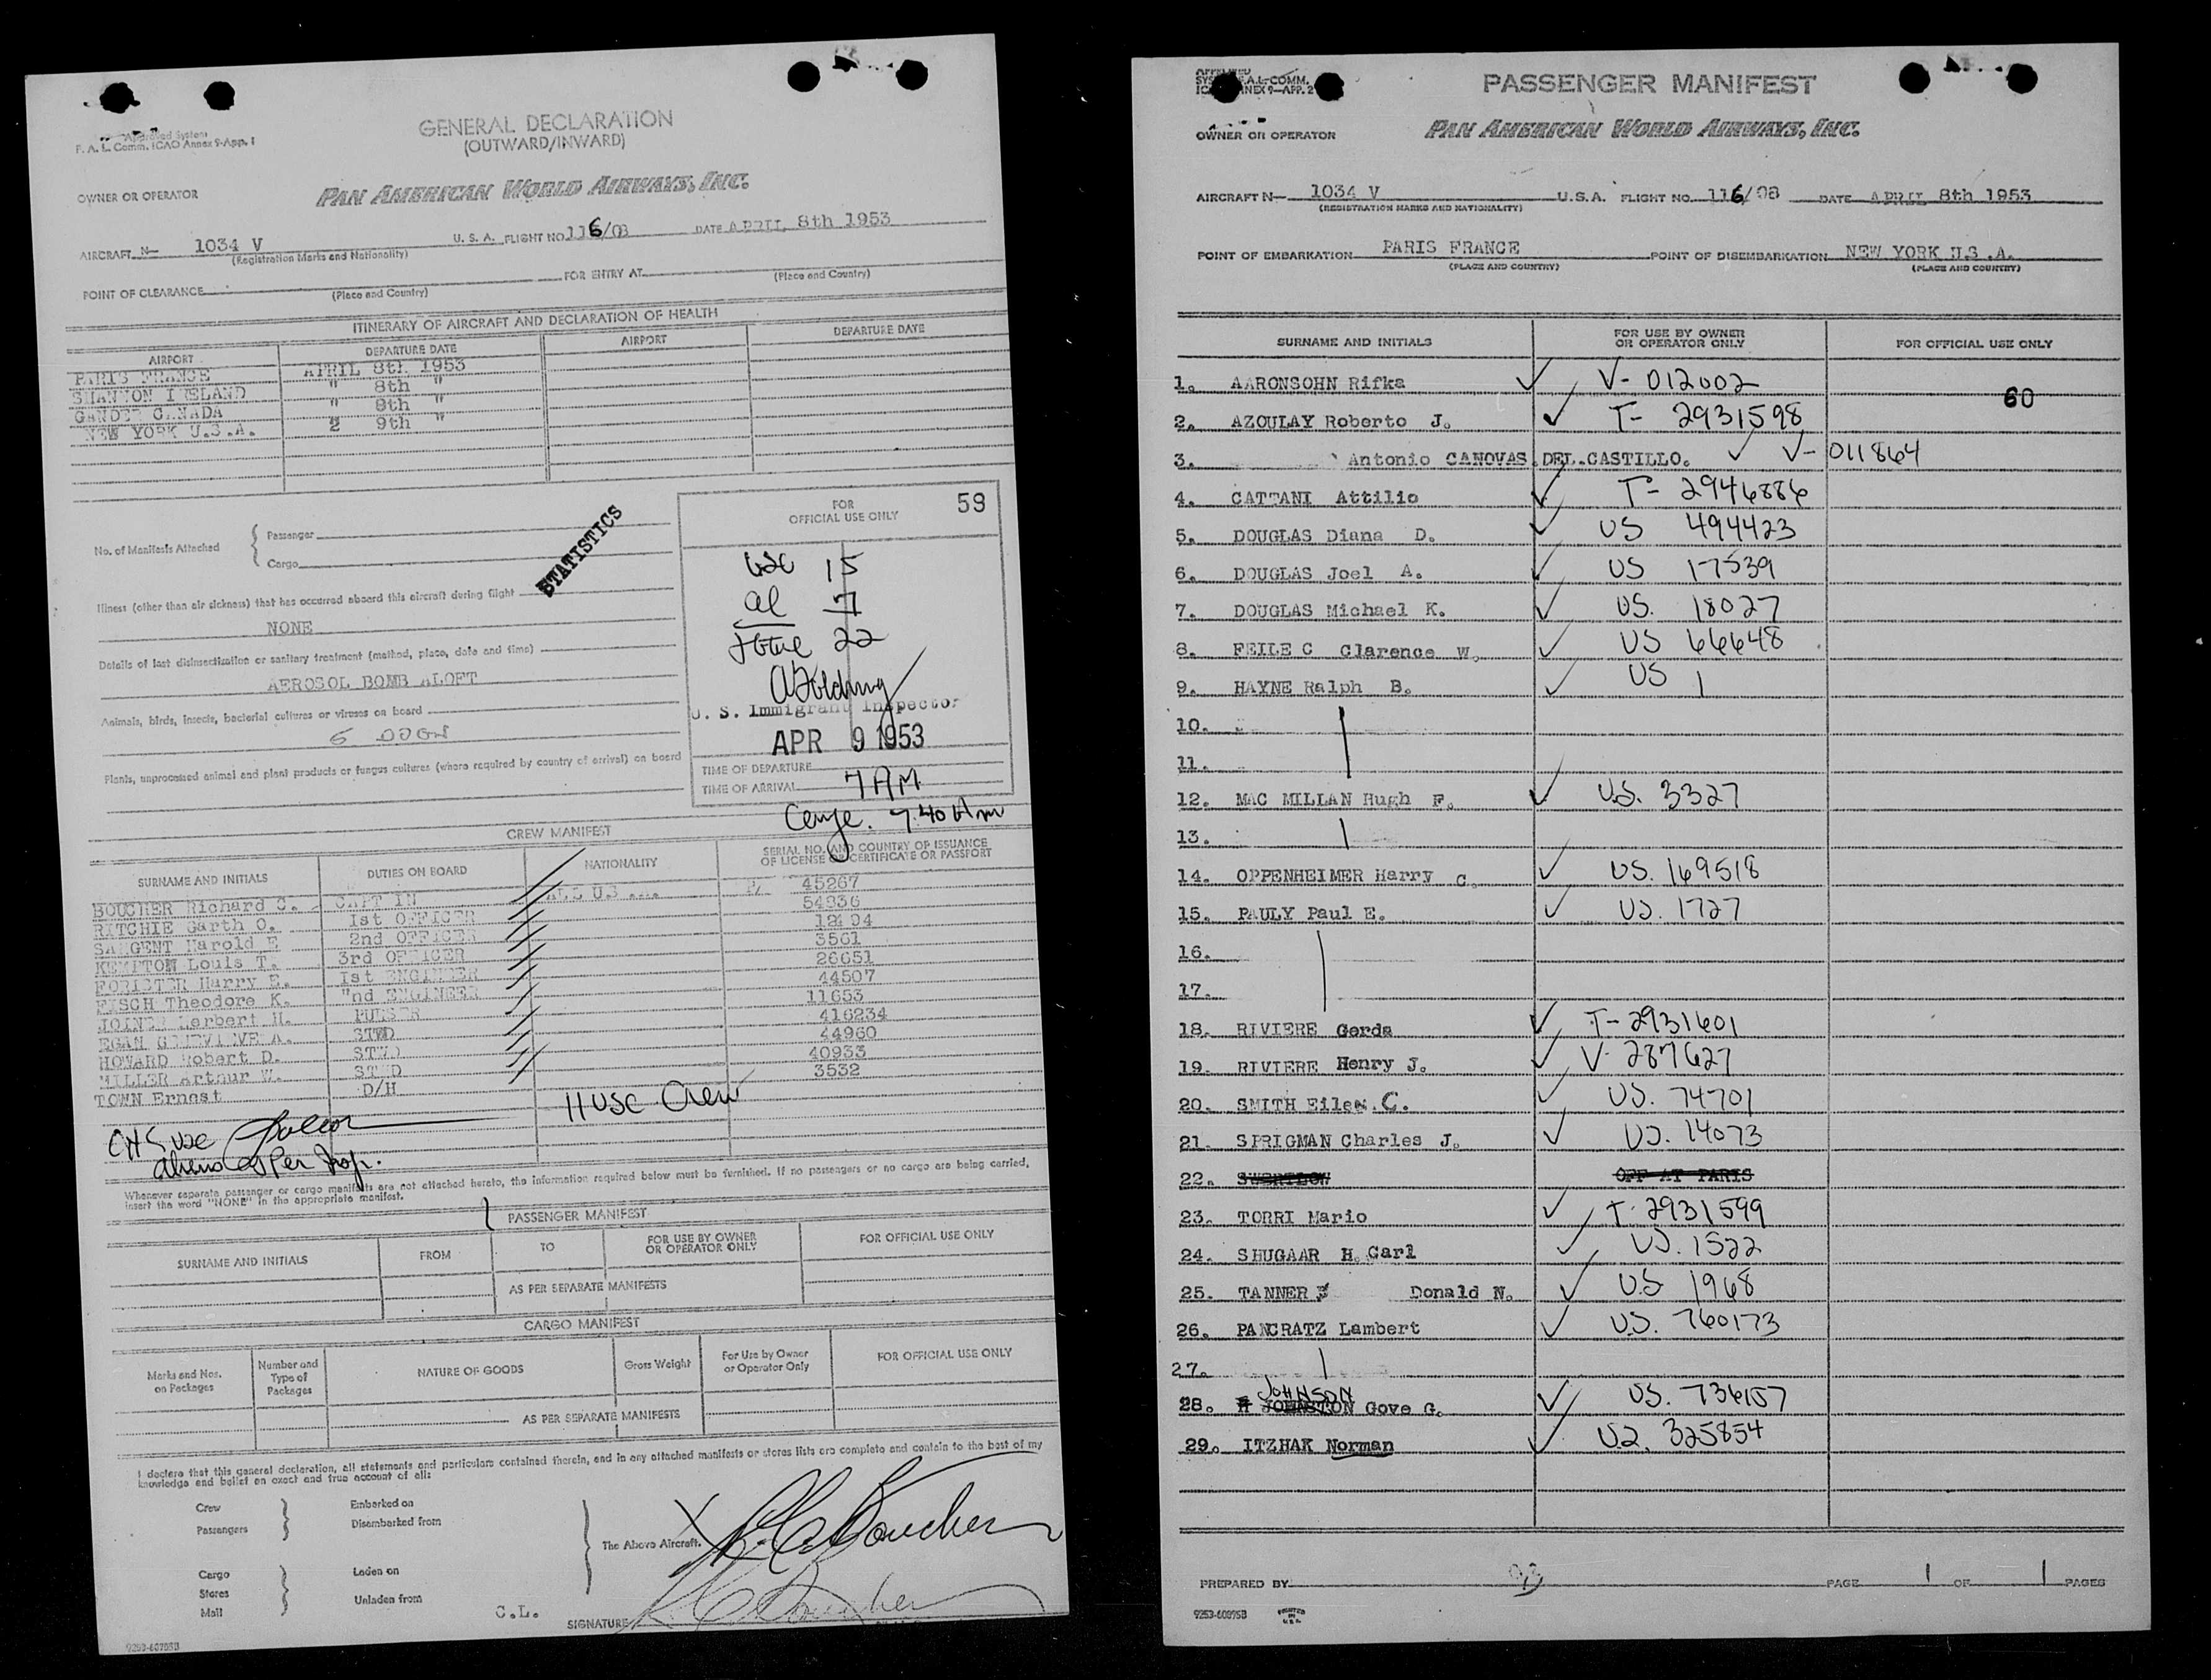 Approved System
F. A. L. Comm. ICAO Annex 9-App. 1
GENERAL DECLARATION
(OUTWARD/INWARD)
OWNER OR OPERATOR
PAN AMERICAN WORLD AIRWAYS, INC.
AIRCRAFT N— 1034 V U. S. A. FLIGHT NO. 116/08 DATE APRIL 8th 1953
(Registration Marks and Nationality)
POINT OF CLEARANCE FOR ENTRY AT
(Place and Country) (Place and Country)
ITINERARY OF AIRCRAFT AND DECLARATION OF HEALTH
AIRPORT DEPARTURE DATE AIRPORT DEPARTURE DATE
PARIS FRANCE APRIL 8th 1953
SHANNON IRELAND " 8th "
GANDER CANADA " 8th "
NEW YORK U.S.A. 9th "
No. of Manifests Attached
Passenger
Cargo
STATISTICS
FOR
OFFICIAL USE ONLY
59
USC 15
al 7
total 22
U. S. Immigrant Inspector
APR 9 1953
TIME OF DEPARTURE
TIME OF ARRIVAL 7 AM
7.40 Am
Illness (other than air sickness) that has occurred aboard this aircraft during flight
NONE
Details of last disinsectization or sanitary treatment (method, place, date and time)
AEROSOL BOMB ALOFT
Animals, birds, insects, bacterial cultures or viruses on board
Plants, unprocessed animal and plant products or fungus cultures (where required by country of arrival) on board
CREW MANIFEST
SURNAME AND INITIALS DUTIES ON BOARD NATIONALITY SERIAL NO. AND COUNTRY OF ISSUANCE OF LICENSE OR CERTIFICATE OR PASSPORT
BOUCHER Richard C. CAPTAIN ALL U.S.A. P/ 45267
RITCHIE Garth O. 1st OFFICER 54836
SARGENT Harold E 2nd OFFICER
KEMPTON Louis T. 3rd OFFICER 3561
FORISTER Harry E. 1st ENGINEER 26651
FISCH Theodore K. "nd ENGINEER 44507
JOINER Herbert H. PURSER 11653
EGAN GENEVIEVE A. STWD 416234
HOWARD Robert D. STWD 44960
MILLER Arthur W. STWD 40933
TOWN Ernest D/H 3532
11 USC Crew
Whenever separate passenger or cargo manifests are not attached hereto, the information required below must be furnished. If no passengers or no cargo are being carried,
insert the word "NONE" in the appropriate manifest.
PASSENGER MANIFEST
SURNAME AND INITIALS FROM TO FOR USE BY OWNER OR OPERATOR ONLY FOR OFFICIAL USE ONLY
AS PER SEPARATE MANIFESTS
CARGO MANIFEST
Marks and Nos. on Packages Number and Type of Packages NATURE OF GOODS Gross Weight For Use by Owner or Operator Only FOR OFFICIAL USE ONLY
AS PER SEPARATE MANIFESTS
I declare that this general declaration, all statements and particulars contained therein, and in any attached manifests or stores lists are complete and contain to the best of my
knowledge and belief an exact and true account of all:
Crew Embarked on
Passengers Disembarked from
The Above Aircraft.
Cargo Laden on
Stores
Mail Unladen from
C.L. SIGNATURE R C Boucher
9253-60795B
ICAO ANNEX 9—APP. 2
PASSENGER MANIFEST
OWNER OR OPERATOR PAN AMERICAN WORLD AIRWAYS, INC.
AIRCRAFT N— 1034 V U.S.A. FLIGHT NO. 116/08 DATE APRIL 8th 1953
(REGISTRATION MARKS AND NATIONALITY)
POINT OF EMBARKATION PARIS FRANCE POINT OF DISEMBARKATION NEW YORK U.S.A.
(PLACE AND COUNTRY) (PLACE AND COUNTRY)
SURNAME AND INITIALS FOR USE BY OWNER OR OPERATOR ONLY FOR OFFICIAL USE ONLY
60
1. AARONSOHN Rifka V- 012002
2. AZOULAY Roberto J. T- 2931598
3. Antonio CANOVAS DEL CASTILLO. V- 011864
4. CATTANI Attilio T- 2946886
5. DOUGLAS Diana D. US 494423
6. DOUGLAS Joel A. US 17539
7. DOUGLAS Michael K. US. 18027
8. FEILE C Clarence W. US 66648
9. HAYNE Ralph B. US 1
10.
11.
12. MAC MILLAN Hugh F. U.S. 3327
13.
14. OPPENHEIMER Harry C. US. 169518
15. PAULY Paul E. US. 1727
16.
17.
18. RIVIERE Gerda T- 2931601
19. RIVIERE Henry J. V- 287627
20. SMITH Eileen C. US. 74701
21. SPRIGMAN Charles J. US. 14073
22. OFF AT PARIS
23. TORRI Mario T. 2931599
24. SHUGAAR H. Carl US. 1522
25. TANNER Donald N. US 1968
26. PANCRATZ Lambert U.S. 760173
27.
JOHNSON
28. JOHNSTON Gove G. US. 736157
29. ITZHAK Norman U.S. 325854
PREPARED BY PAGE 1 OF 1 PAGES
9253-60895B PRINTED IN U.S.A.